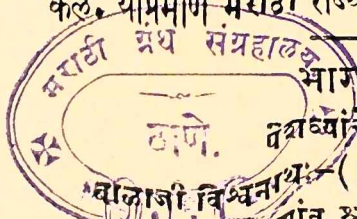 केलें. याप्रमाणें मराठी राज्य
मराठी ग्रंथ संग्रहालय
भाग
ठाणे.
पेशव्यां
बाळाजी विश्वनाथः-(